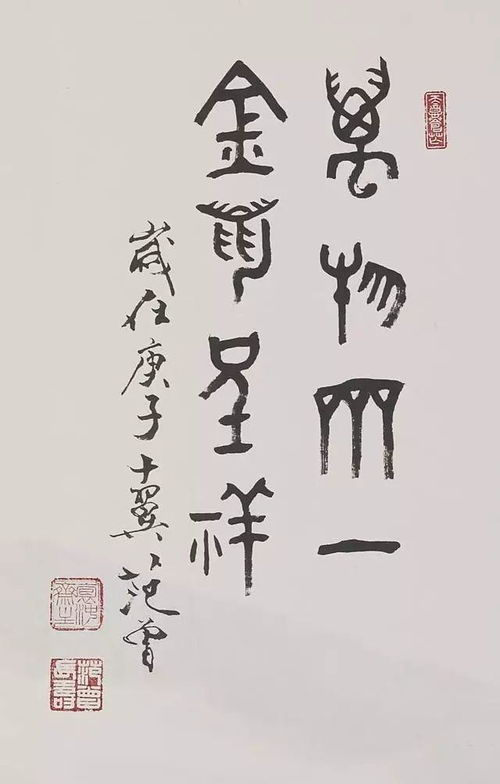 萬物齊一
金鼠呈祥
歲在庚子十翼范曾